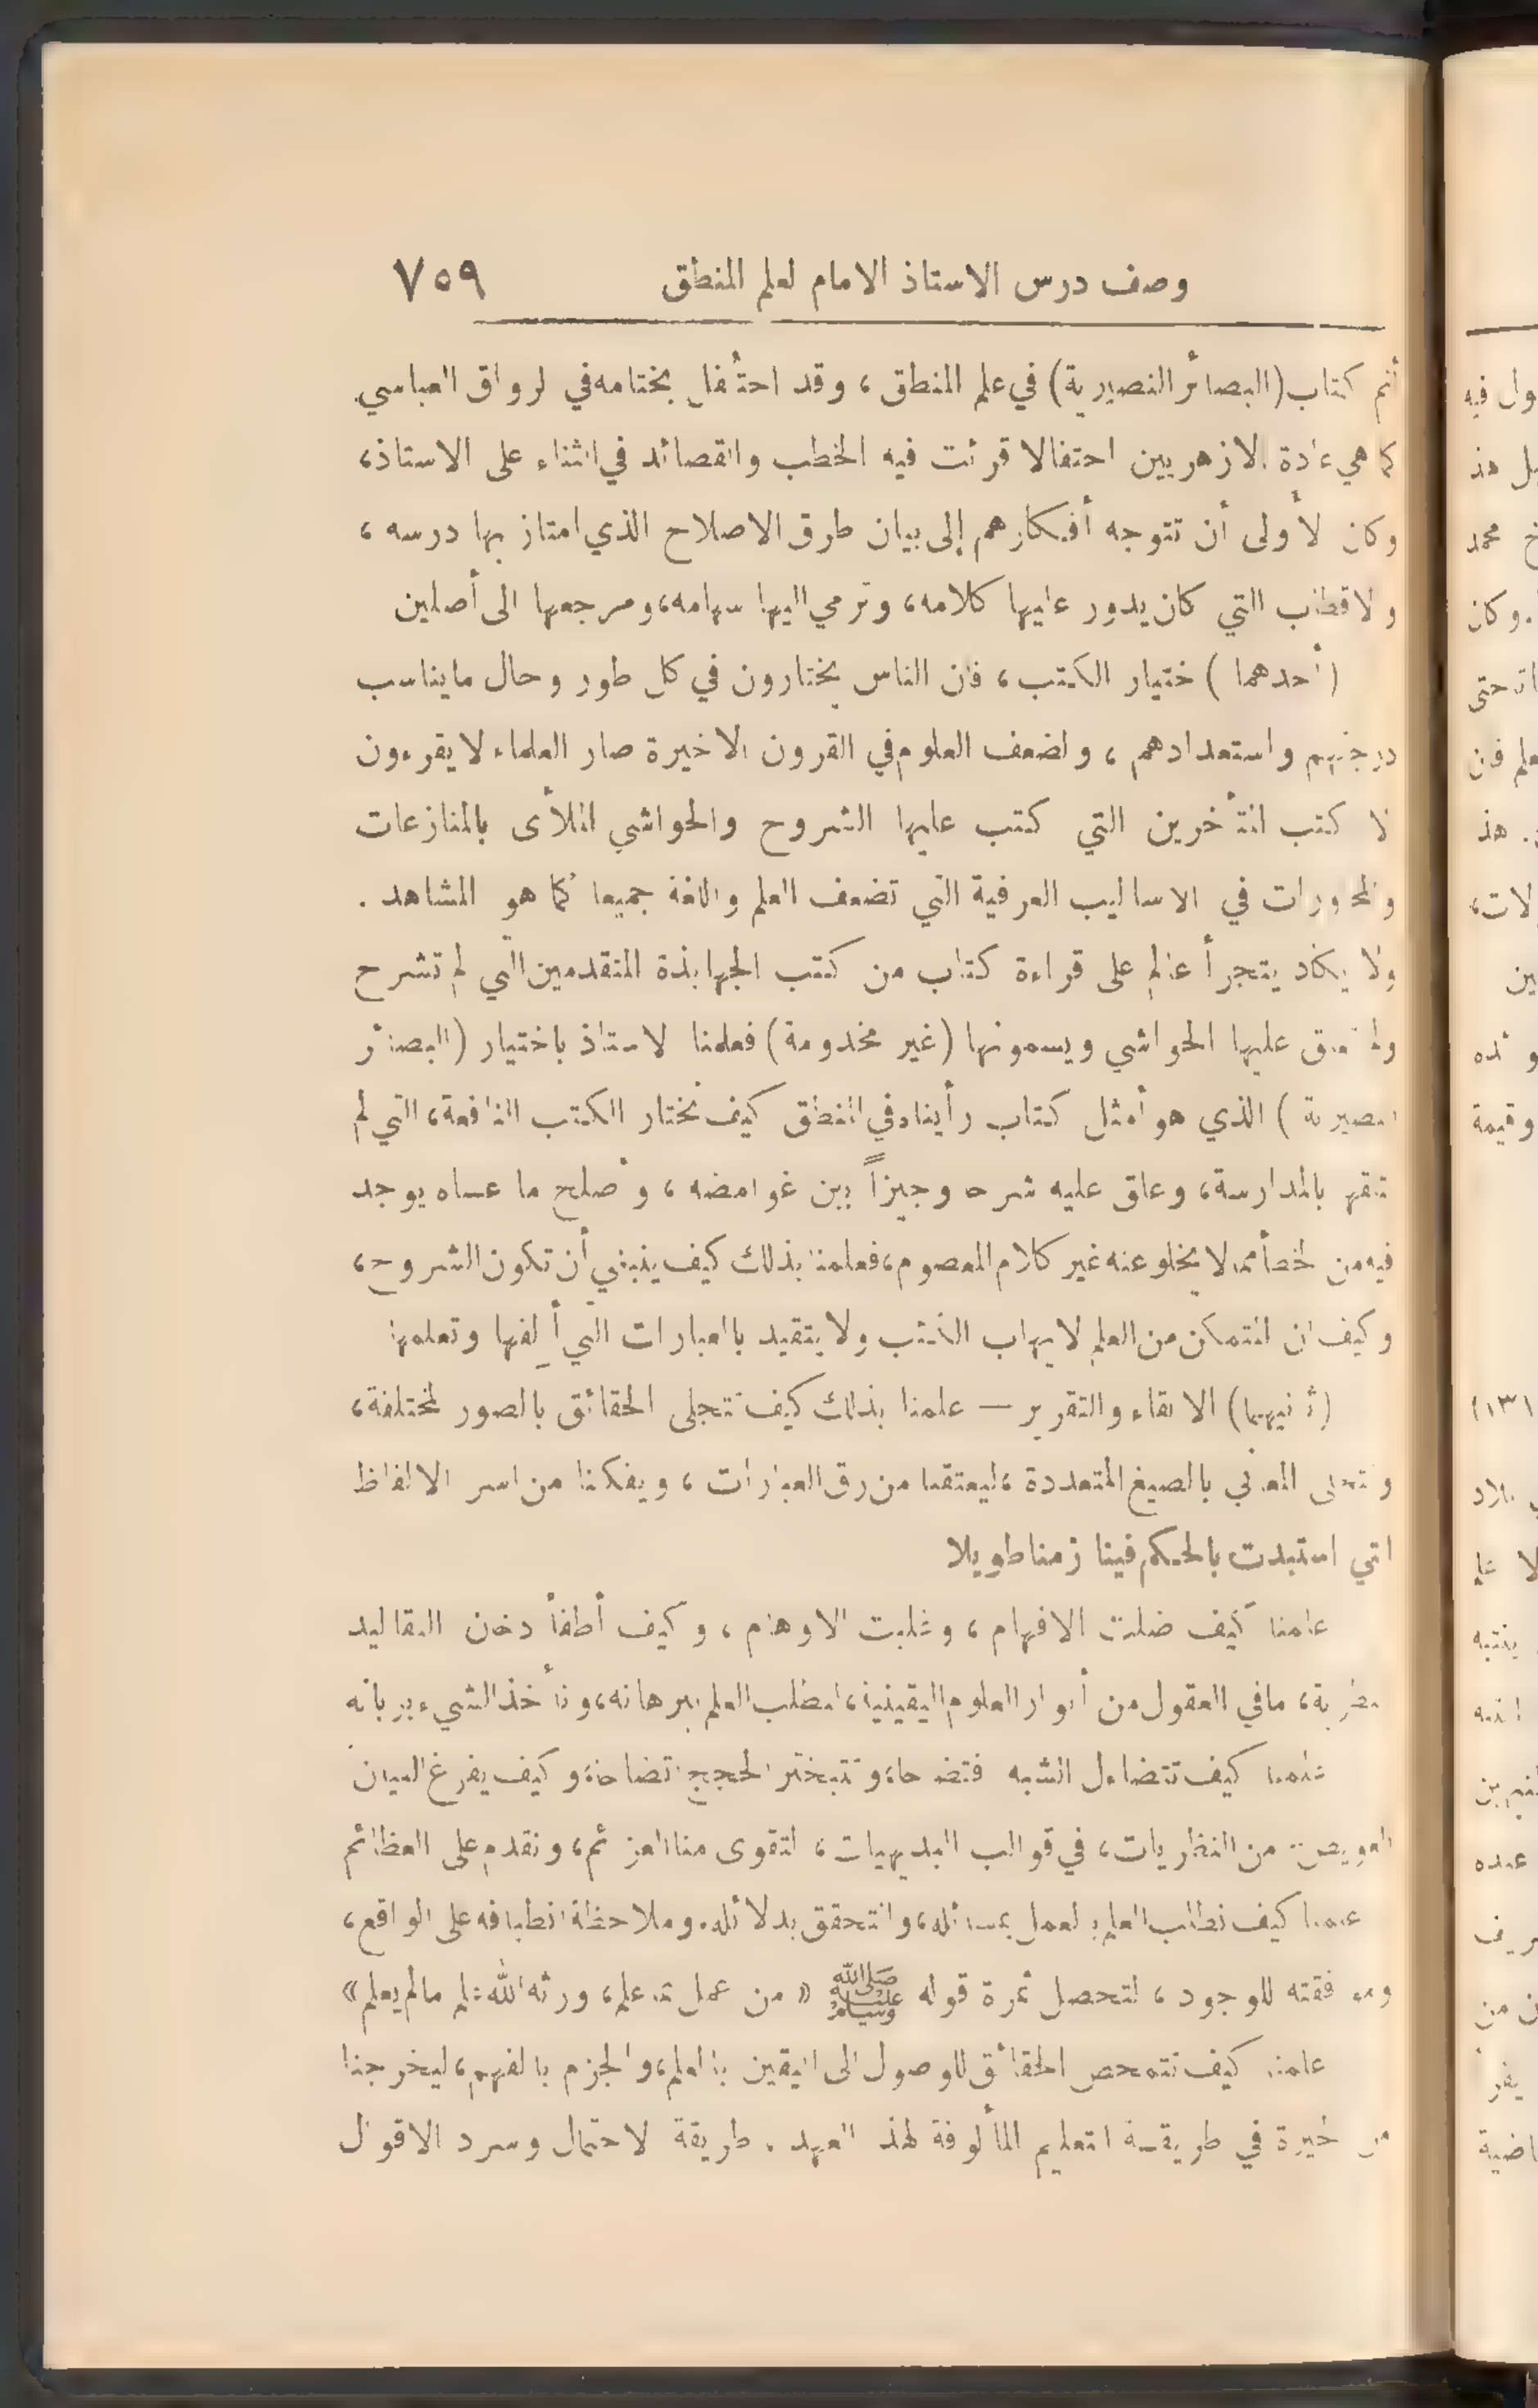 وصف درس الاستاذ الامام لعلم المنطق ٧٥٩
أتم كتاب (البصائر النصيرية) في علم المنطق ، وقد احتُفل بختامه في الرواق العباسي
كما هي عادة الازهريين احتفالا قرئت فيه الخطب والقصائد في الثناء على الاستاذ،
وكان الأولى أن تتوجه أفكارهم إلى بيان طرق الاصلاح الذي امتاز بها درسه ،
والاقطاب التي كان يدور عليها كلامه، وترمي اليها سهامه، ومرجعها الى أصلين
( أحدهما ) اختيار الكتب ، فان الناس يختارون في كل طور وحال ما يناسب
درجتهم واستعدادهم ، ولضعف العلوم في القرون الاخيرة صار العلماء لا يقرءون
الا كتب المتأخرين التي كتب عليها الشروح والحواشي الملأى بالمنازعات
والمحاورات في الاساليب العرفية التي تضعف العلم واللغة جميعا كما هو المشاهد .
ولا يكاد يتجرأ عالم على قراءة كتاب من كتب الجهابذة المتقدمين التي لم تشرح
ولم تعلق عليها الحواشي ويسمونها (غير مخدومة) فعلمنا الاستاذ باختيار (البصائر
النصيرية ) الذي هو أمثل كتاب رأيناه في المنطق كيف نختار الكتب النافعة، التي لم
بالمدارسة، وعلق عليه شرحا وجيزاً بين غوامضه ، وأصلح ما عساه يوجد
فيه من الخطأ مما لا يخلو عنه غير كلام المعصوم، فعلمنا بذلك كيف ينبغي أن تكون الشروح،
وكيف ان المتمكن من العلم لا يهاب الكتب ولا يتقيد بالعبارات التي ألِفها وتعلمها
(ثانيهما) الالقاء والتقرير — علمنا بذلك كيف تتجلى الحقائق بالصور المختلفة،
وتتجلى المعاني بالصيغ المتعددة ، ليعتقنا من رق العبارات ، ويفكنا من اسر الالفاظ
التي استبدت بالحكم فينا زمنا طويلا
علمنا كيف ضلت الافهام ، وغلبت الاوهام ، وكيف أطفأ دخان التقاليد
ما في العقول من أنوار العلوم اليقينية، لنطلب العلم ببرهانه، ونأخذ الشيء بربانه
علمنا كيف تتضاءل الشبه وتتبختر الحجج وكيف يفرغ البيان
العويص من النظريات، في قوالب البديهيات ، لتقوى منا العزائم، ونقدم على العظائم
علمنا كيف نطلب العلم بالعمل بمسائله، والتحقق بدلائله. وملاحظة انطباقه على الواقع،
وموافقته للوجود ، لتحصل ثمرة قوله ﷺ « من عمل بما علم، ورثه الله علم مالم يعلم»
علمنا كيف تتمحص الحقائق للوصول الى اليقين بالعلم، والجزم بالفهم، ليخرجنا
من الحيرة في طريقة التعليم المألوفة لهذا العهد . طريقة الاحتمال وسرد الاقوال